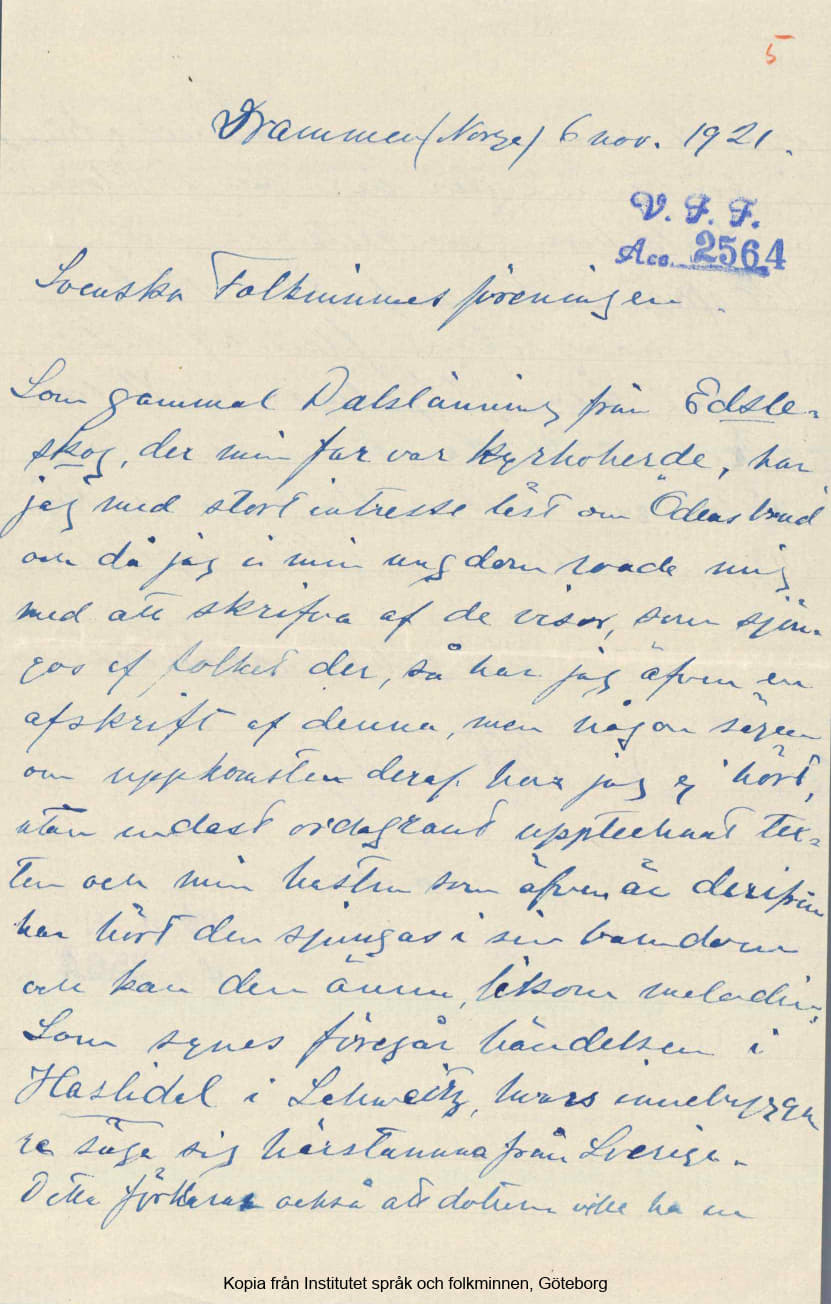 5
Drammen (Norge) 6 nov. 1921.
V. F. F.
Acc. 2564
Svenska Folkminnesföreningen.
Som gammal Dalslänning från Edsle-
skog, der min far var kyrkoherde, har
jag med stort intresse läst om "Ödens brud"
och då jag i min ungdom roade mig
med att skrifva af de visor, som sjön-
gos af folket der, så har jag äfven en
afskrift af denna, men någon sägen
om uppkomsten deraf har jag ej hört,
utan endast ordagrant upptecknat tex-
ten och min hustru som äfven är derifrån
har hört den sjungas i sin barndom
och kan den ännu, liksom melodin.
Som synes föregår händelsen i
Haslidal i Schweitz, hvars innebygga
re säga sig härstamma från Sverige.
Detta förklarar också att dottern ville ha en
Kopia från Institutet språk och folkminnen, Göteborg